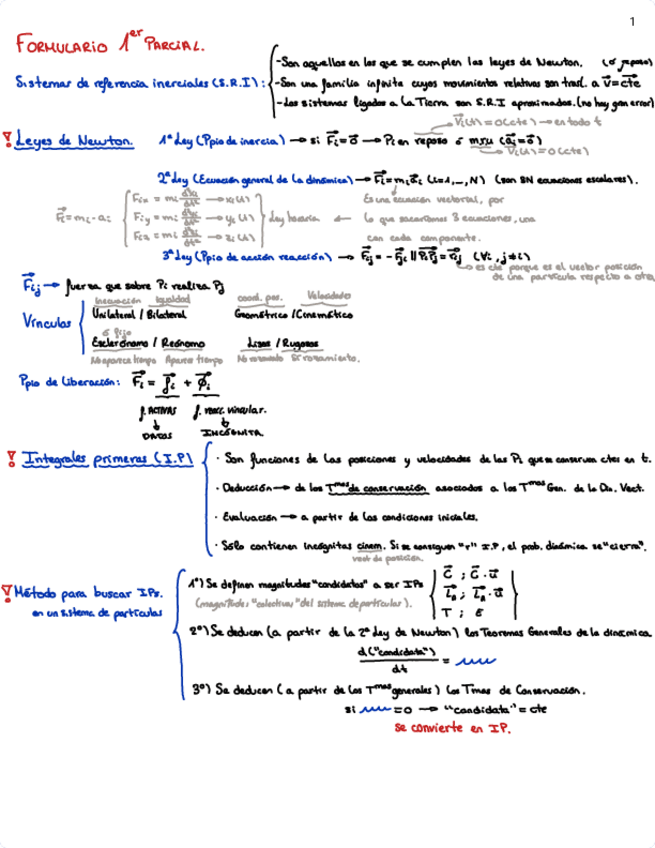 1
FORMULARIO 1er PARCIAL.
Sistemas de referencia inerciales (S.R.I):
-Son aquellos en los que se cumplen las leyes de Newton. (ó reposo)
-Son una familia infinita cuyos movimientos relativos son trasl. a v⃗=cte
-Los sistemas ligados a La Tierra son S.R.I aproximados. (no hay gran error)
V⃗i(t) = 0 (cte) → en todo t
! Leyes de Newton. 1ª Ley (Ppio de inercia) → si F⃗i=0⃗ → Pi en reposo ó mru (a⃗i=0⃗)
V⃗i(t) = 0 (cte)
2ª Ley (Ecuación general de la dinámica) → F⃗i=mi a⃗i (i=1,...,N) (son 3N ecuaciones escalares).
F⃗i = mi · ai
Fix = mi d²xi/dt² → xi(t)
Fiy = mi d²yi/dt² → yi(t)
Fiz = mi d²zi/dt² → zi(t)
Ley horaria ←
Es una ecuación vectorial, por
lo que sacaríamos 3 ecuaciones, una
con cada componente.
3ª Ley (Ppio de acción reacción) → F⃗ij = - F⃗ji || PiPj = r⃗ij (∀i, j≠i)
es cte porque es el vector posición
de una partícula respecto a otra.
F⃗ij → fuerza que sobre Pi realiza Pj
Vínculos
Inecuación Igualdad coord. pos. Velocidades
Unilateral / Bilateral Geométrico / Cinemático
ó fijo
Esclerónomo / Reónomo Lisos / Rugosos
No aparece tiempo Aparece tiempo No rozamiento Si rozamiento.
Ppio de Liberación: F⃗i = f⃗i + ϕ⃗i
f. ACTIVAS f. reacc. vincular.
↓ ↓
DATOS INCÓGNITA
! Integrales primeras (I.P)
· Son funciones de las posiciones y velocidades de las Pi que se conservan ctes en t.
· Deducción → de los Tmas de conservación asociados a los Tmas Gen. de la Din. Vect.
· Evaluación → a partir de las condiciones iniciales.
· Sólo contienen incógnitas cinem. Si se consiguen "r" I.P, el prob. dinámico se "cierra".
vect de posición.
! Método para buscar IPs.
en un sistema de partículas
1º) Se definen magnitudes "candidatas" a ser IPs
(magnitudes "colectivas" del sistema de partículas).
C⃗ ; C⃗ · u⃗
T ; E
2º) Se deducen (a partir de la 2ª Ley de Newton) los Teoremas Generales de la dinámica
d("candidata")/dt =
3º) Se deducen (a partir de los Tmas generales) los Tmas de Conservación.
si = 0 → "candidata" = cte
se convierte en IP.